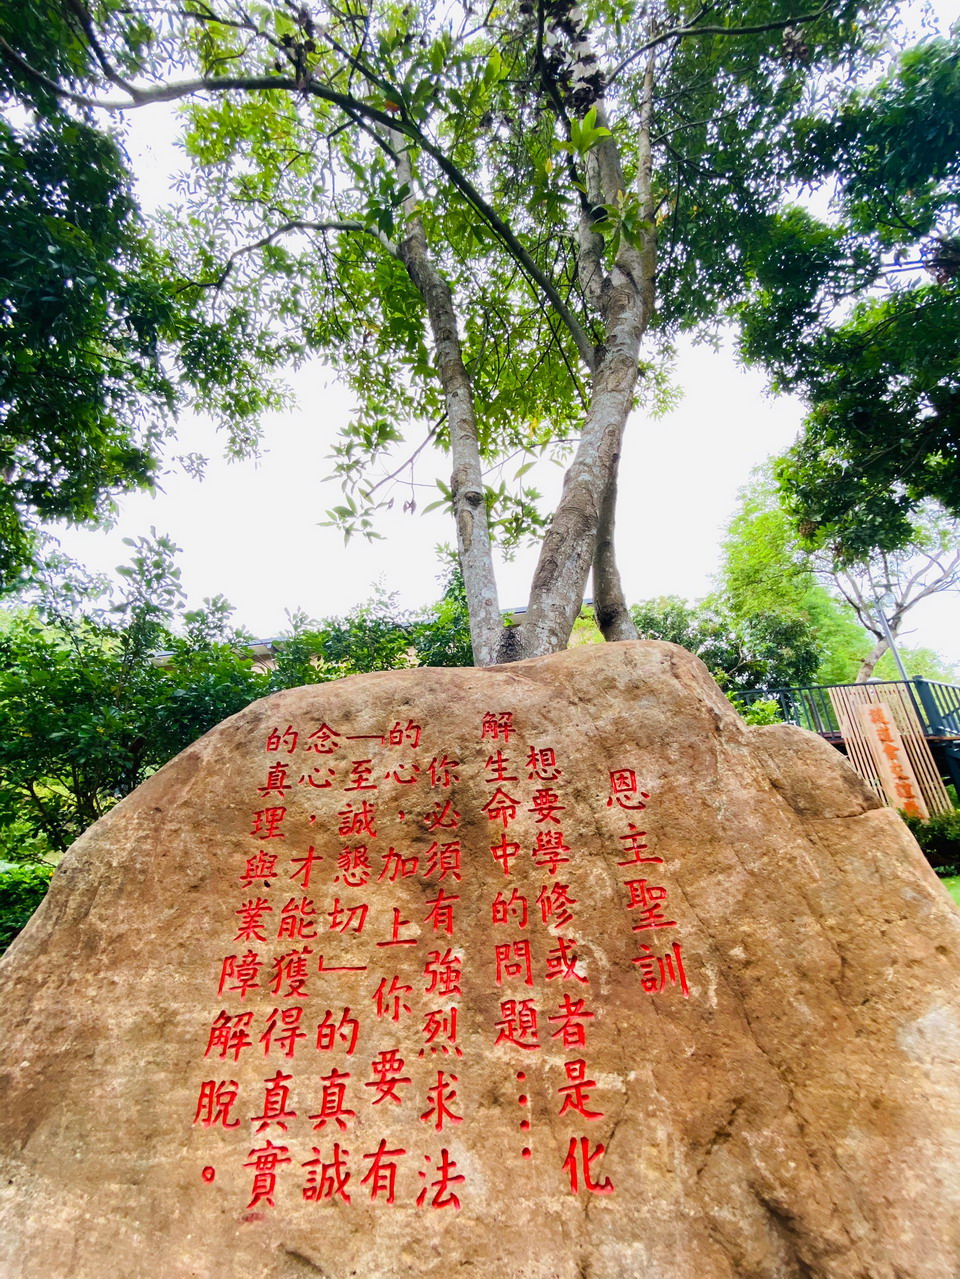 恩主聖訓
想要學修或者是化
解生命中的問題：：
你必須有強烈求法
的心，加上你要有
「至誠懇切」的真誠
念心，才能獲得真實
的真理與業障解脫。